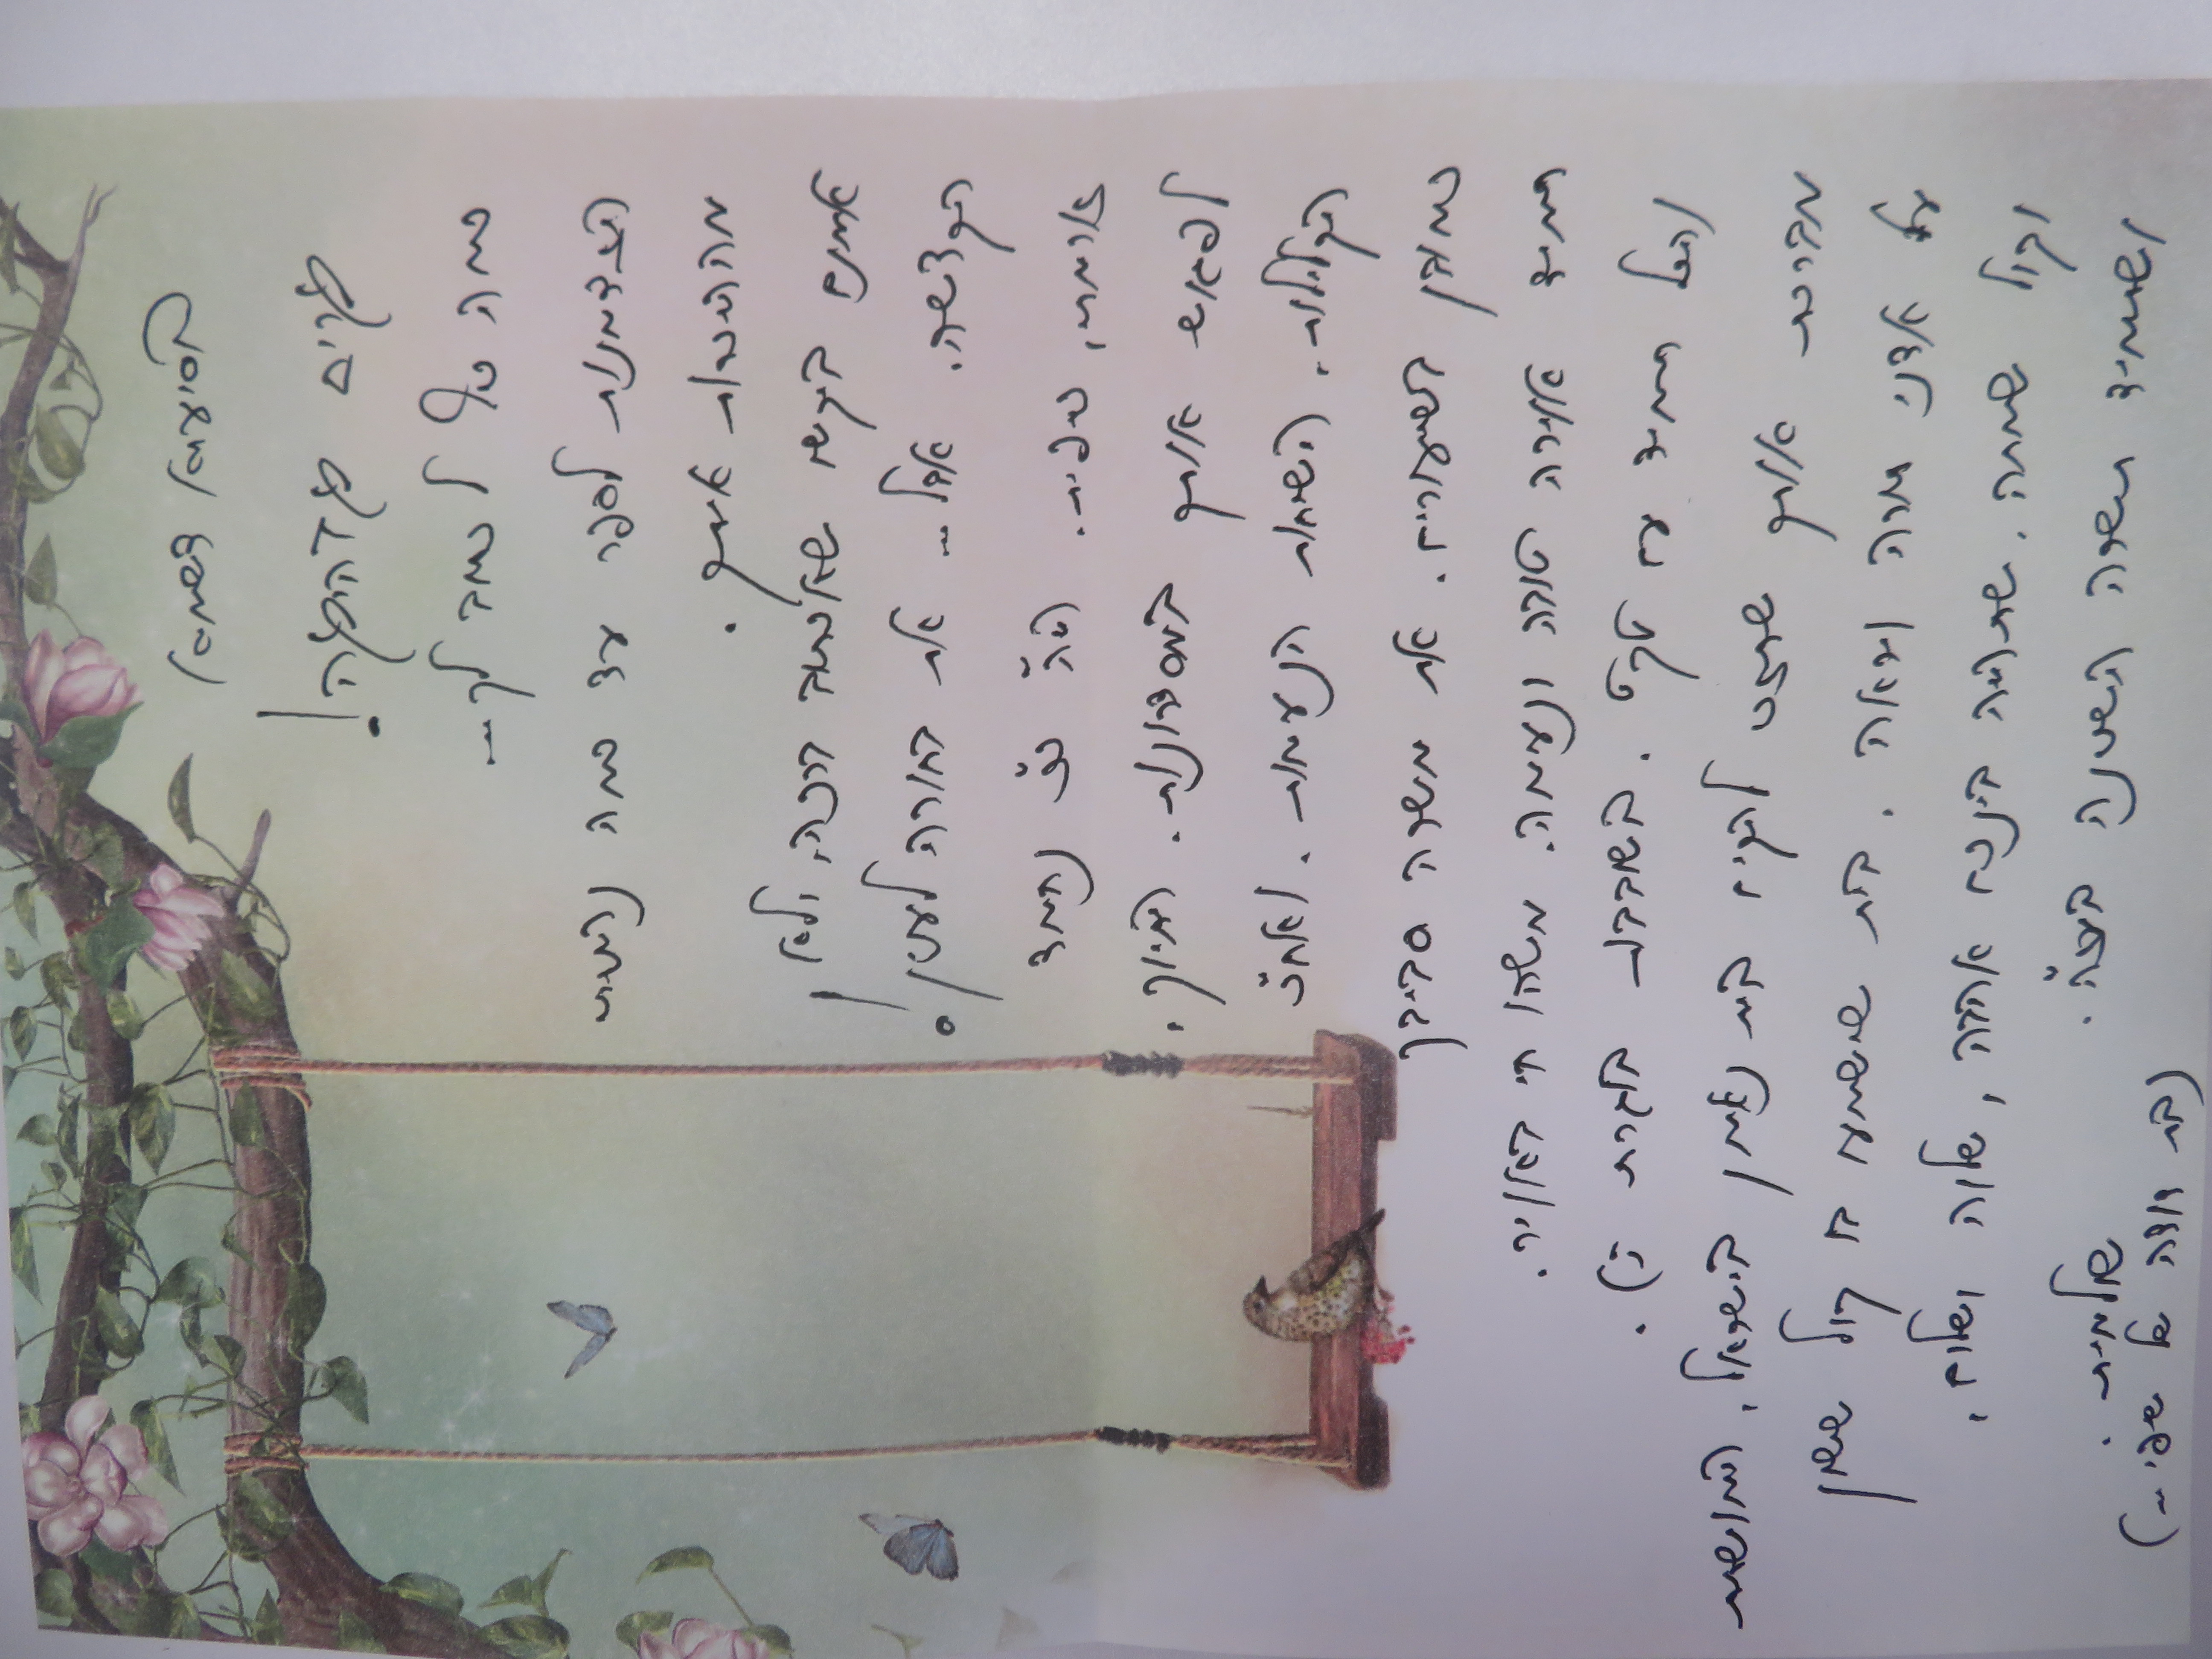 בסיעתא דשמיא
מרים מדהימה!
כמה טוב לכתוב לך...
הזדמנות לספר עד כמה נהניתי
מההיכרות איתך.
אמנם ביקשו שאכתוב ברכה, ולא
הקדשה. אבל... את בחורה לעניין!
זורמת, כיפית. היה כ״כ נחמד
לפגוש אותך במסדרונות. החיוך,
הקלילות, השיחות הנעימות. ואח״כ
כמובן בשיעורים. את משרה סביבך
תמיד אוירה טובה ונעימה. משהו חי באוויר.
והכל תמיד עם טקט. בשובבות בוגרת :).
מברכת אותך שתזכי להקים בית נאמן בישראל, המושתת
על אדני תורה ויראה. בית שישמעו בו קול ששון
וקול שמחה. שתהיה ביניכם אהבה, שלוה ושלום,
ושתמיד תשרה השכינה ביתכם.
שולמית.
(בת דודה של שפי...)